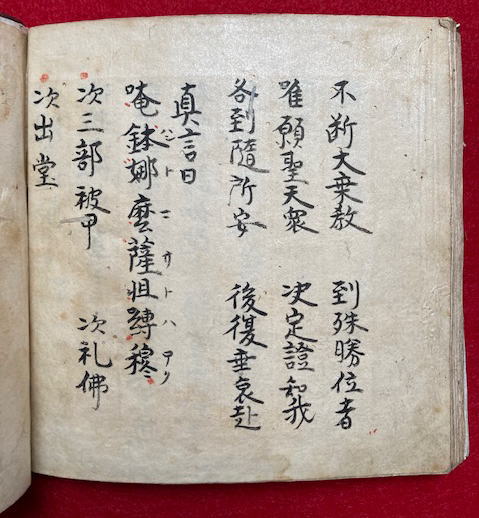 不断大乗教　到殊勝位者
唯願聖天衆　决定證知我
各到隨所安　後復垂哀赴
真言曰
唵鉢娜麼薩怛縛穆
ハントマサトハアク
次三部被甲　次礼佛
次出堂